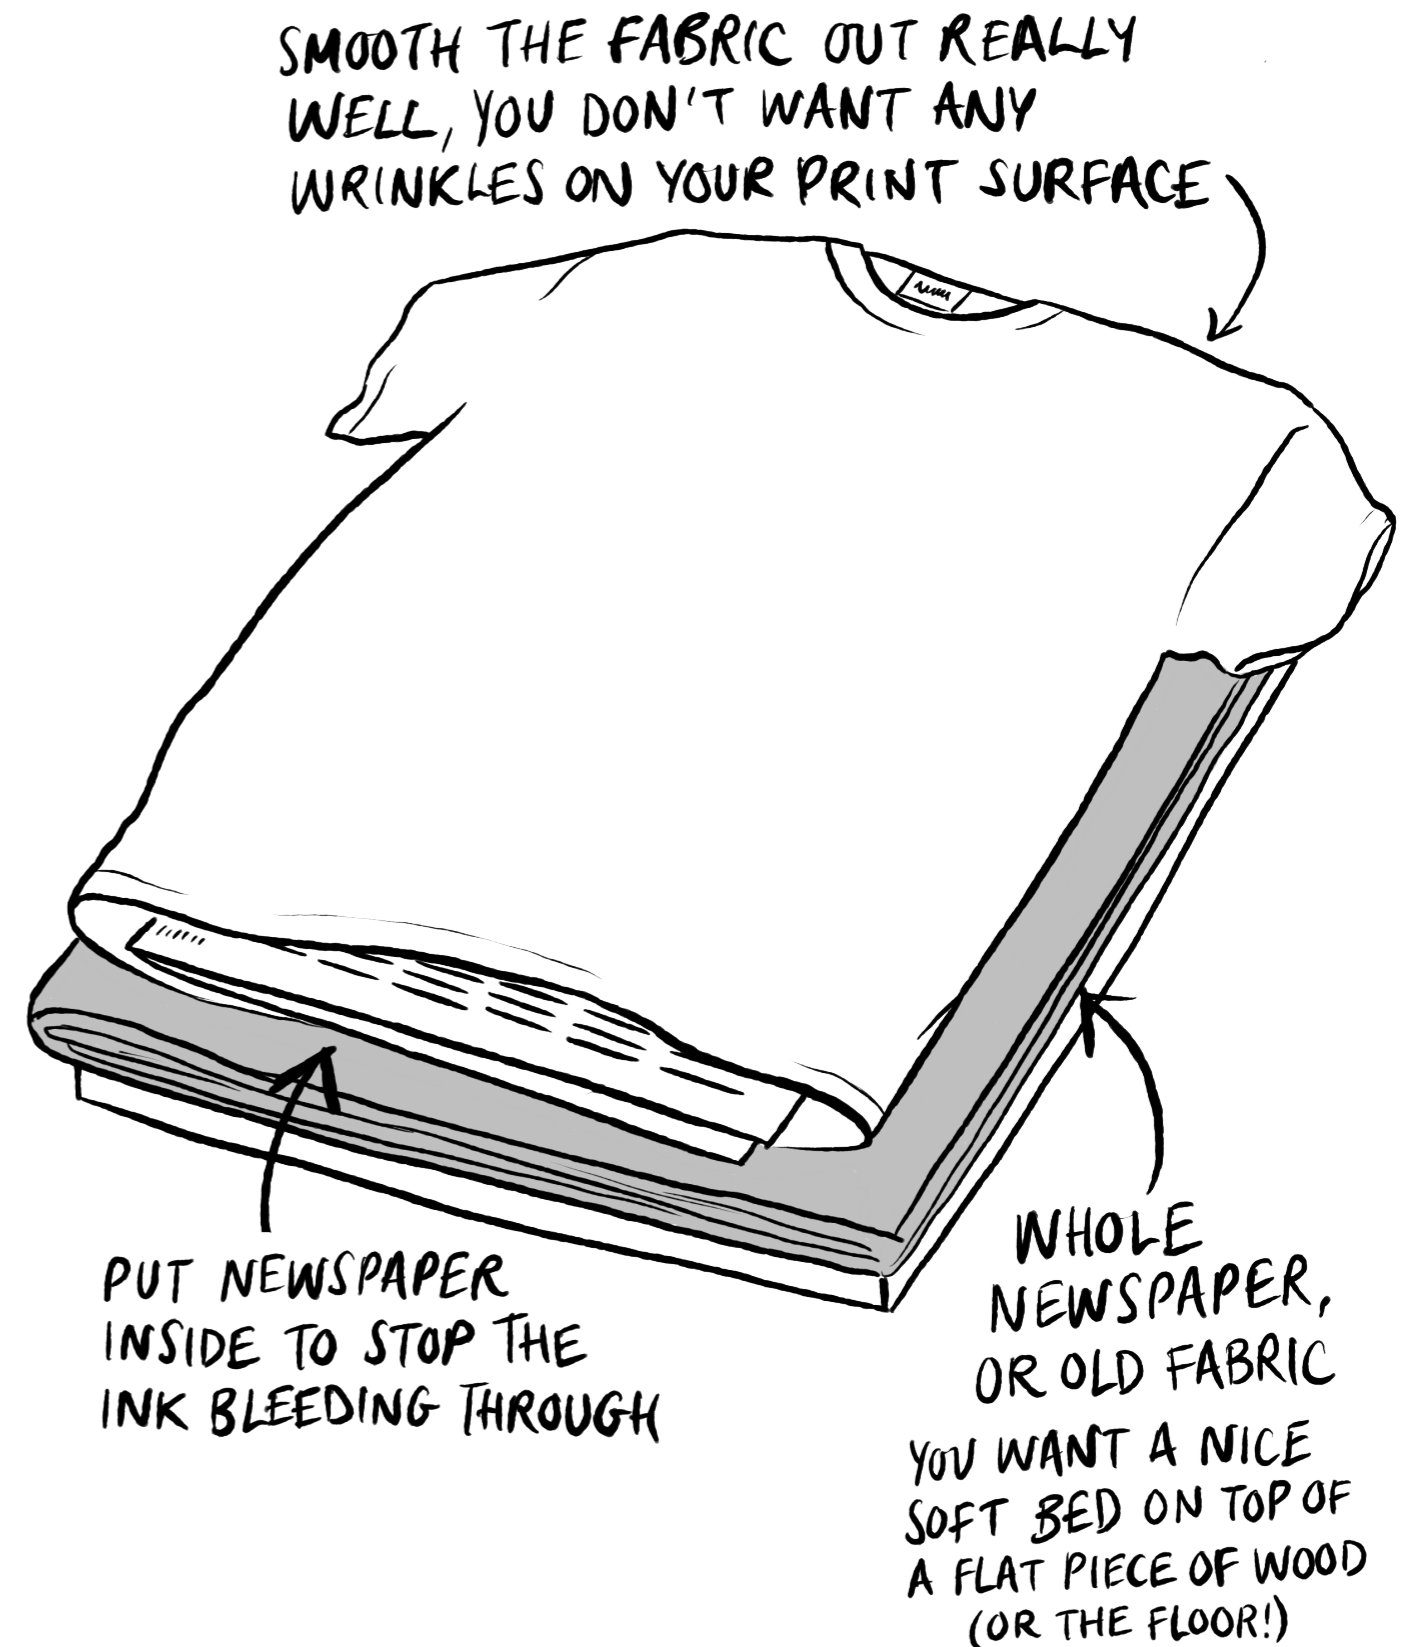 SMOOTH THE FABRIC OUT REALLY
WELL, YOU DON'T WANT ANY
WRINKLES ON YOUR PRINT SURFACE
PUT NEWSPAPER
INSIDE TO STOP THE
INK BLEEDING THROUGH
WHOLE
NEWSPAPER,
OR OLD FABRIC
YOU WANT A NICE
SOFT BED ON TOP OF
A FLAT PIECE OF WOOD
(OR THE FLOOR!)